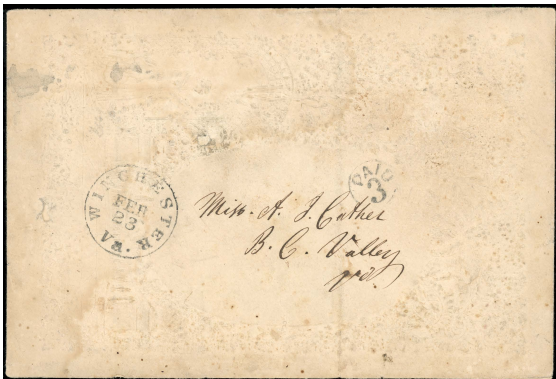 WINCHESTER VA.
FEB
23
PAID
3
Miss. A. J. Cather
B. C. Valley
Va.